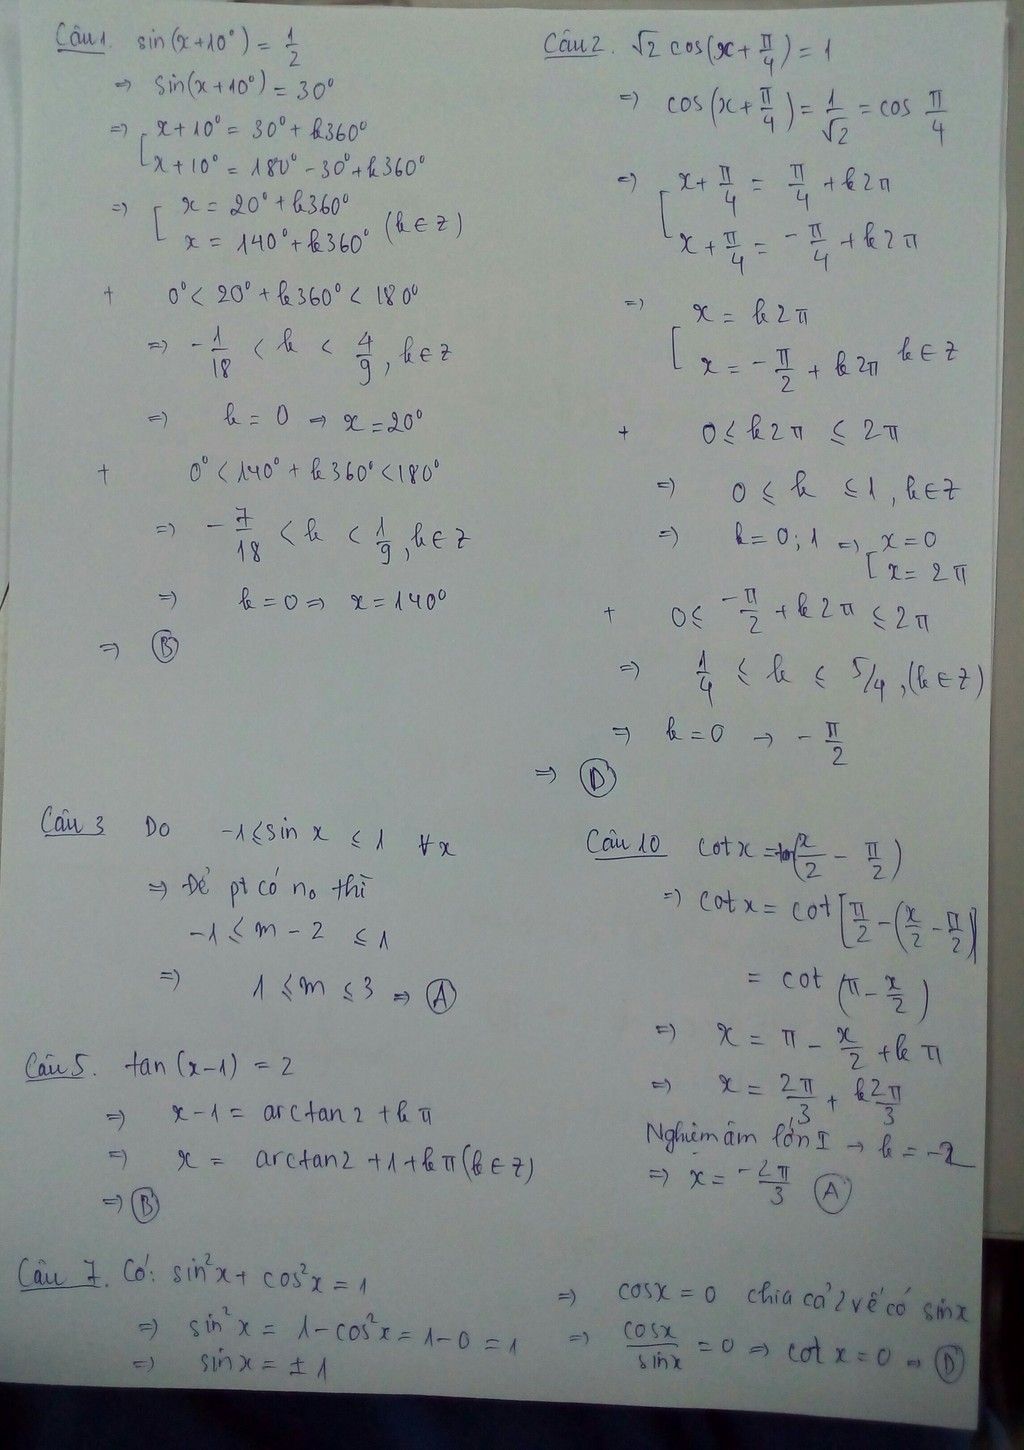 Câu 1. sin(x+10°) = 1/2
=> sin(x+10°) = 30°
=> [ x+10° = 30° + k360°
x+10° = 180° - 30° + k360°
=> [ x = 20° + k360°
x = 140° + k360° (k ∈ Z)
+ 0° < 20° + k360° < 180°
=> -1/18 < k < 4/9, k ∈ Z
=> k = 0 => x = 20°
+ 0° < 140° + k360° < 180°
=> -7/18 < k < 1/9, k ∈ Z
=> k = 0 => x = 140°
=> B
Câu 2. √2 cos(x + π/4) = 1
=> cos(x + π/4) = 1/√2 = cos π/4
=> [ x + π/4 = π/4 + k2π
x + π/4 = -π/4 + k2π
=> [ x = k2π
x = -π/2 + k2π k ∈ Z
+ 0 ≤ k2π ≤ 2π
=> 0 ≤ k ≤ 1, k ∈ Z
=> k = 0; 1 => [ x = 0
x = 2π
+ 0 ≤ -π/2 + k2π ≤ 2π
=> 1/4 ≤ k ≤ 5/4, (k ∈ Z)
=> k = 0 → -π/2
=> D
Câu 3 Do -1 ≤ sin x ≤ 1 ∀x
=> Để pt có no thì
-1 ≤ m - 2 ≤ 1
=> 1 ≤ m ≤ 3 => A
Câu 5. tan(x-1) = 2
=> x-1 = arctan2 + kπ
=> x = arctan2 + 1 + kπ (k ∈ Z)
=> B
Câu 10 cotx = tan(x/2 - π/2)
=> cotx = cot[π/2 - (x/2 - π/2)]
= cot (π - x/2)
=> x = π - x/2 + kπ
=> x = 2π/3 + k2π/3
Nghiệm âm lớn I → k = -2
=> x = -2π/3 A
Câu 7. Có: sin²x + cos²x = 1
=> sin²x = 1 - cos²x = 1 - 0 = 1
=> sinx = ± 1
=> cosx = 0 chia cả 2 vế có sinx
=> cosx/sinx = 0 => cotx = 0 => D